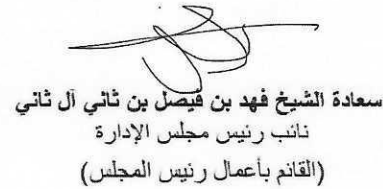 سعادة الشيخ فهد بن فيصل بن ثاني آل ثاني
نائب رئيس مجلس الإدارة
(القائم بأعمال رئيس المجلس)